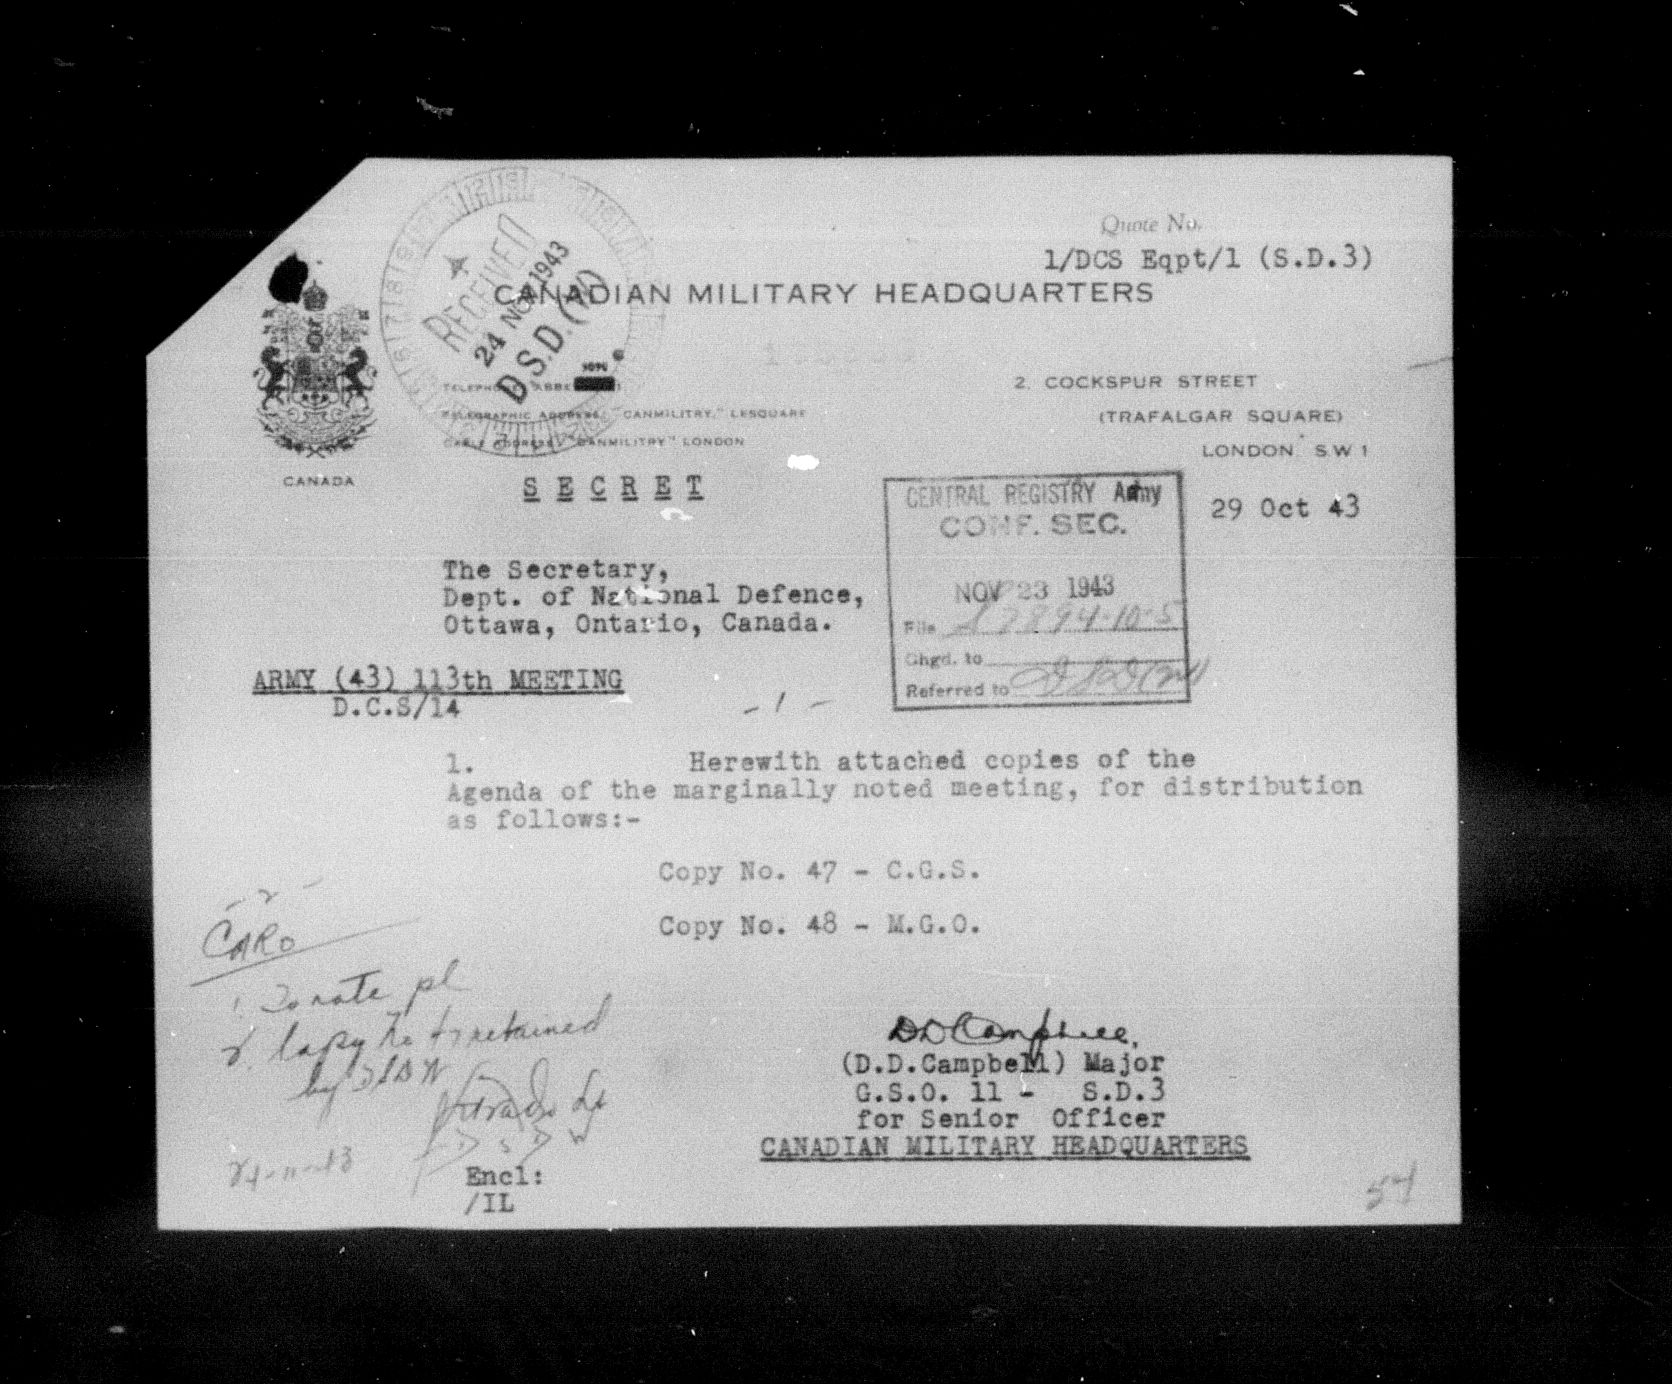 Quote No.
1/DCS Eqpt/1 (S.D.3)
CANADIAN MILITARY HEADQUARTERS
RECEIVED
24 NOV 1943
D.S.D. (W)
2, COCKSPUR STREET
TELEGRAPHIC ADDRESS, "CANMILITRY," LESQUARE
(TRAFALGAR SQUARE)
CABLE ADDRESS, "CANMILITRY" LONDON
LONDON S.W 1
CANADA
SECRET
CENTRAL REGISTRY Army
CONF. SEC.
29 Oct 43
NOV 23 1943
File
Chgd. to
Referred to
The Secretary,
Dept. of National Defence,
Ottawa, Ontario, Canada.
ARMY (43) 113th MEETING
D.C.S/14
- 1 -
1. Herewith attached copies of the
Agenda of the marginally noted meeting, for distribution
as follows:-
Copy No. 47 - C.G.S.
Copy No. 48 - M.G.O.
- 2 -
CARO
1. To note pl
2. Copy to be retained
by DSDW
24-11-43
D D Campbell,
(D.D.Campbell) Major
G.S.O. 11 - S.D.3
for Senior Officer
CANADIAN MILITARY HEADQUARTERS
Encl:
/IL
54